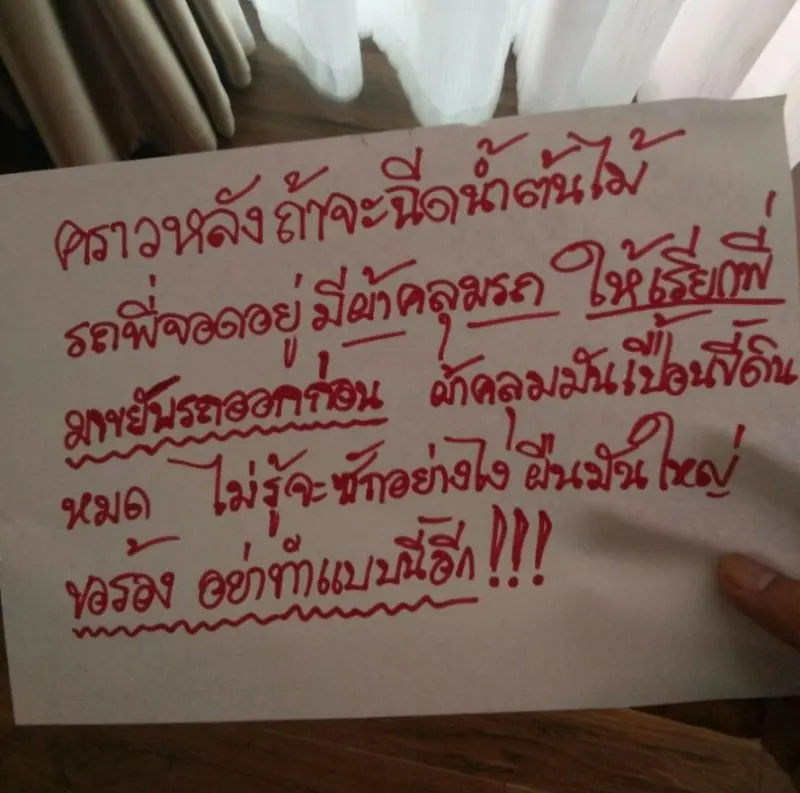 คราวหลังถ้าจะฉีดน้ำต้นไม้
รถพี่จอดอยู่ มีผ้าคลุมรถ ให้เรียกพี่
มาขยับรถออกก่อน ผ้าคลุมมันเปื้อนขี้ดิน
หมด ไม่รู้จะซักอย่างไง ผืนมันใหญ่
ขอร้อง อย่าทำแบบนี้อีก!!!